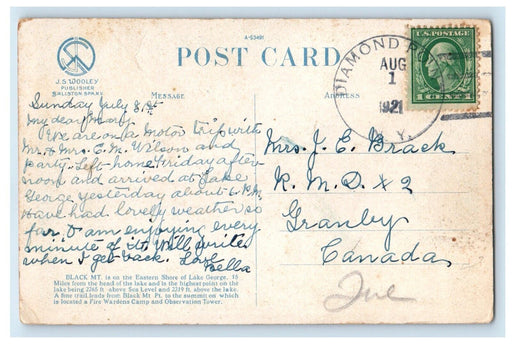 A-53491
POST CARD
J. S. WOOLEY
PUBLISHER
BALLSTON SPA N.Y.
MESSAGE
ADDRESS
DIAMOND PO
AUG
1
1921
N.Y.
U.S. POSTAGE
CENTS
Sunday July 31st
My dear
We are on a motor trip with
Mr. & Mrs. C. M. Wilson and
party. Left home Friday after-
noon and arrived at Lake
George yesterday about 6 P.M.
Have had lovely weather so
far & am enjoying every
minute of it. Will write
when I get back. Love
Bella
Mrs. J. E. Brack
R. M. D. # 2
Granby
Canada
BLACK MT. is on the Eastern Shore of Lake George, 15
Miles from the head of the lake and is the highest point on the
lake being 2265 ft above Sea Level and 2319 ft. above the lake.
A fine trail leads from Black Mt Pt. to the summit on which
is located a Fire Wardens Camp and Observation Tower.